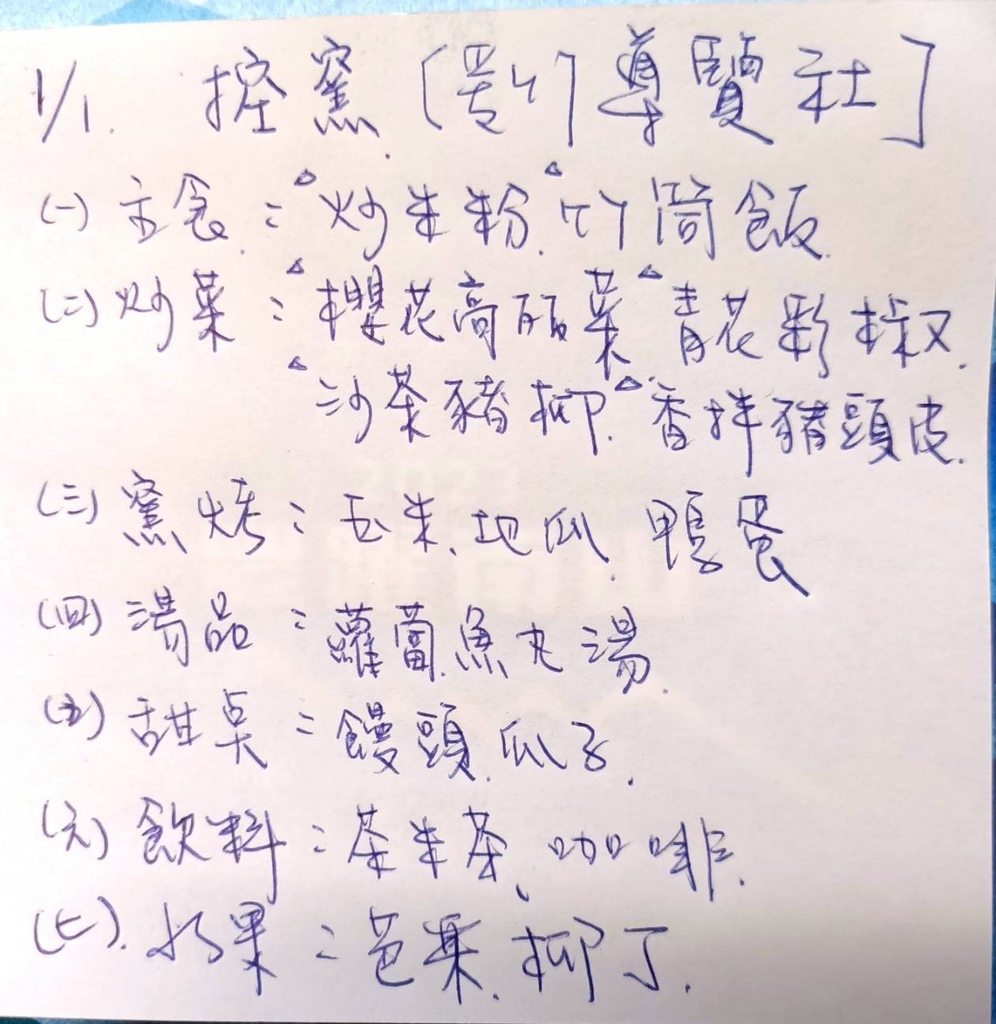 1/1. 控窯〔導覽社〕
(一) 主食：△炒米粉.△竹筒飯.
(二) 炒菜：△櫻花高丽菜△青花彩椒.
△沙茶豬柳.△香拌豬頭皮.
(三) 窯烤：玉米、地瓜. 鴨蛋
(四) 湯品：蘿蔔魚丸湯.
(五) 甜点：饅頭.瓜子.
(六) 飲料：茶米茶、咖啡.
(七). 水果：芭樂.柳丁.